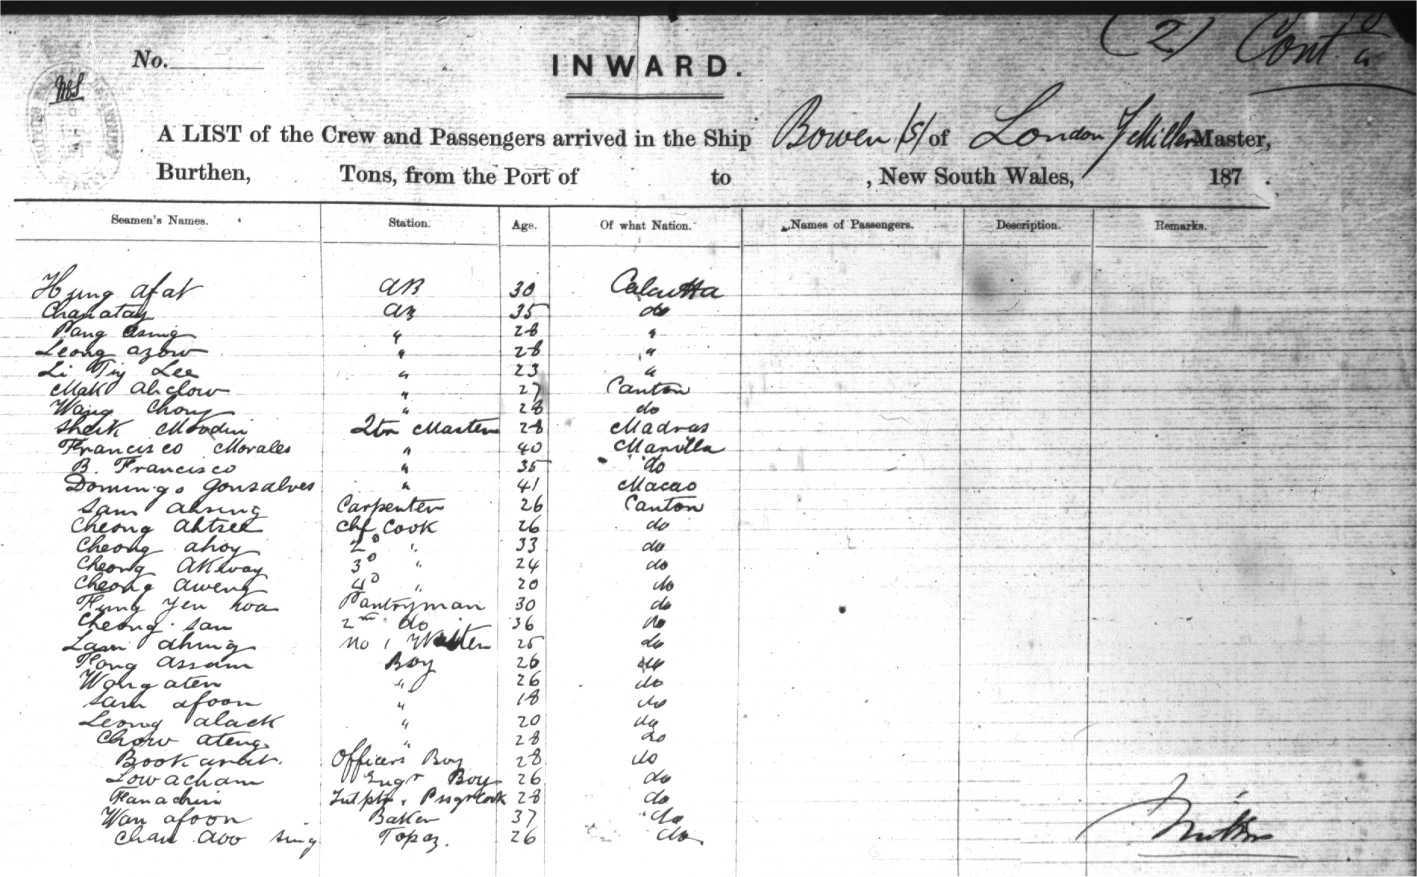 (2) Cont
No.
INWARD.
A LIST of the Crew and Passengers arrived in the Ship Bowen (s) of London J Miller Master,
Burthen, Tons, from the Port of to , New South Wales, 187 .
Seamen's Names. Station. Age. Of what Nation. Names of Passengers. Description. Remarks.
Hung afat AB 30 Calcutta
Chanatay AB 35 do
Pang asing " 28 "
Leong azow " 28 "
Li Tiy Lee " 23 "
Mak ahglow " 27 Canton
Wang Chong " 28 do
Sheik Moodin Qtr Master 28 Madras
Francisco Morales " 40 Manilla
B. Francisco " 35 do
Domingo Gonsalves " 41 Macao
Sam ahsing Carpenter 26 Canton
Cheong ahtiee Chf Cook 26 do
Cheong ahoy 2º " 33 do
Cheong akway 3º " 24 do
Cheong aweng 4º " 20 do
Hung Yeu hoa Pantryman 30 do
Cheong san 2nd do 36 do
Lam ahing No 1 Waiter 25 do
Hong assam Boy 26 do
Wong aten " 26 do
Sam afoon " 18 do
Leong alack " 20 do
Chow ateng " 28 do
Officers Boy 28 do
Lowacham Engr Boy 26 do
28 do
Wan afoon Baker 37 do
Chan aoo sing Topaz. 26 do